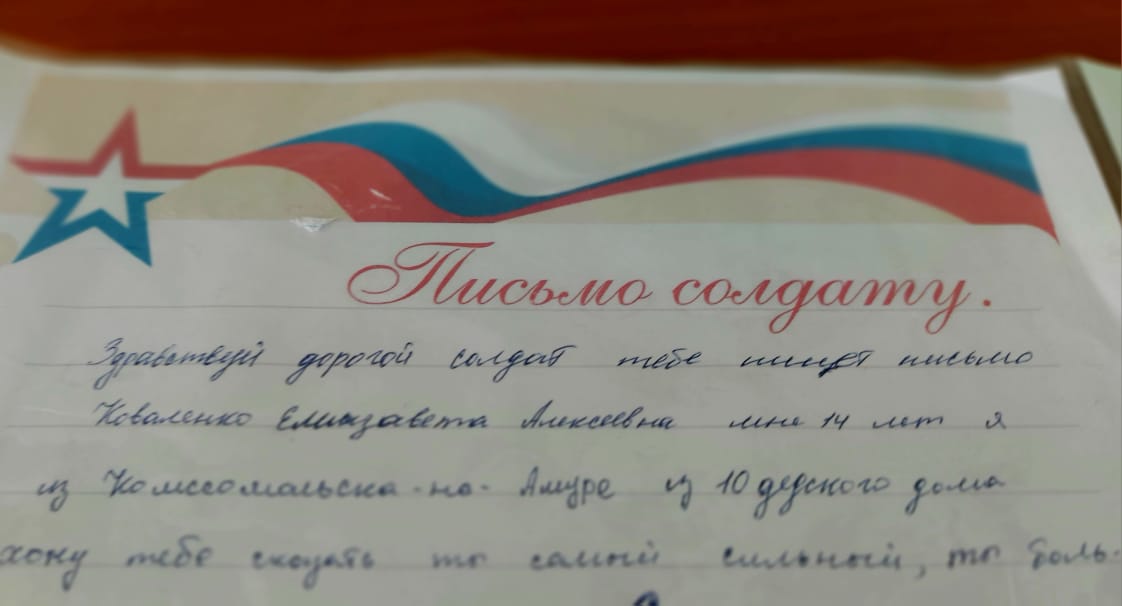 Письмо солдату.
Здравствуй дорогой солдат тебе пишет письмо
Коваленко Елизавета Алексеевна мне 14 лет я
из Комсомольска-на-Амуре из 10 детского дома
хочу тебе сказать ты самый сильный, ты боль-